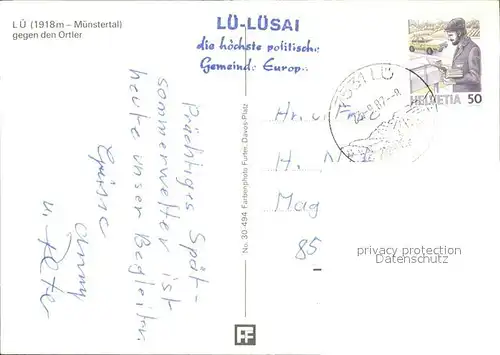 LÜ (1918m – Münstertal)
gegen den Ortler
LÜ-LÜSAI
die höchste politische
Gemeinde Europ..
HELVETIA 50
7531 LÜ
Prächtiges Spät-
sommerwetter ist
heute unser Begleiter.
Grüsse
Anny
u. Peter
No. 30 494 Farbenphoto Furter, Davos-Platz
Hr. u. Fr
H.
Mag
85
privacy protection
Datenschutz